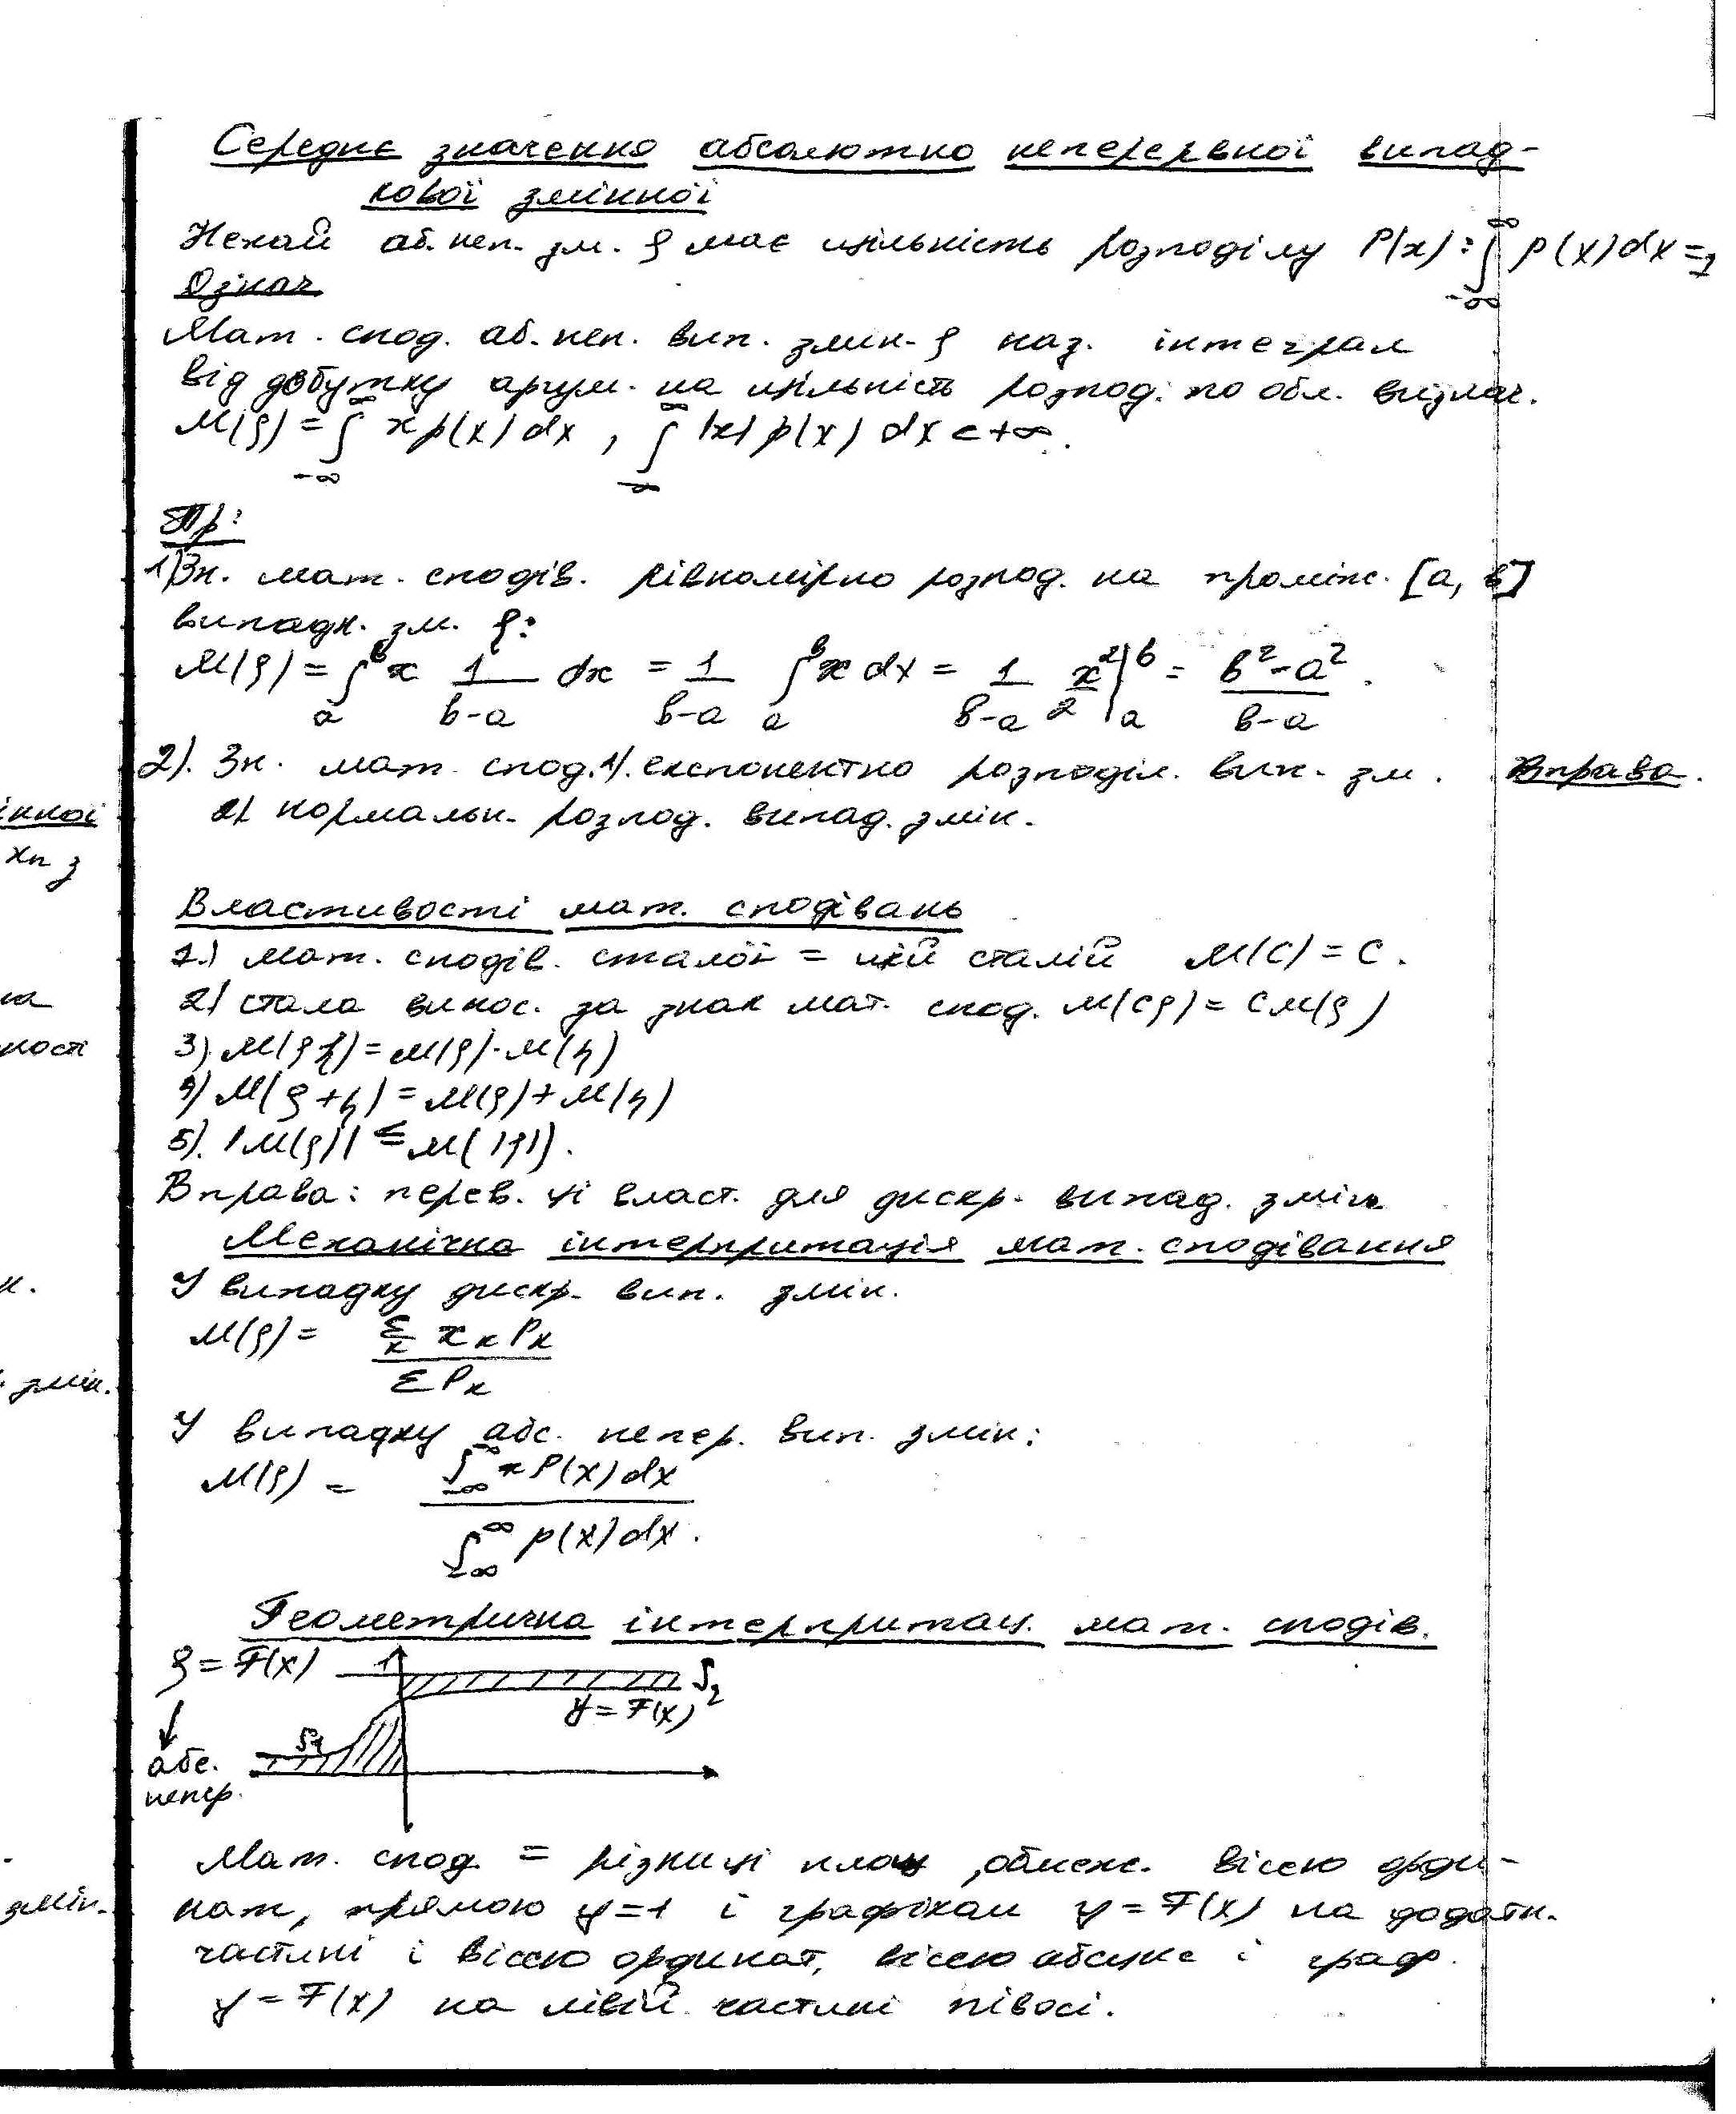 Середнє значення абсолютно неперервної випад-
кової змінної
Нехай аб. неп. зм. ξ має щільність розподілу P(x): ∫_{-∞}^{∞} p(x)dx=1
Означ
Мат. спод. аб. неп. вип. змін. ξ наз. інтеграл
від добутку аргум. на щільність розпод. по обл. визнач.
M(ξ) = ∫_{-∞}^{∞} x p(x) dx , ∫_{-∞}^{∞} |x| p(x) dx < +∞.
Пр:
1) Зн. мат. сподів. рівномірно розпод. на проміж. [a, b]
випадк. зм. ξ:
M(ξ) = ∫_a^b x 1/(b-a) dx = 1/(b-a) ∫_a^b x dx = 1/(b-a) x²/2 |_a^b = (b²-a²)/(b-a).
2). Зн. мат. спод. 1). експонентно розподіл. вип. зм. Вправа.
2) нормальн. розпод. випад. змін.
Властивості мат. сподівань
1.) мат. сподів. сталої = цій сталій M(C) = C.
2) стала винос. за знак мат. спод. M(Cξ) = CM(ξ)
3). M(ξη) = M(ξ)·M(η)
4) M(ξ+η) = M(ξ) + M(η)
5). |M(ξ)| ≤ M(|ξ|).
Вправа: перев. ці власт. для дискр. випад. змін
Механічна інтерпритація мат. сподівання
У випадку дискр. вип. змін.
M(ξ) = Σ_k x_k P_k / Σ P_k
У випадку абс. непер. вип. змін:
M(ξ) = ∫_{-∞}^{∞} x P(x) dx / ∫_{-∞}^{∞} p(x) dx.
Геометрична інтерпритац. мат. сподів.
ξ = F(x) 1 S₂
y = F(x)
S₁
абс.
непер.
Мат. спод. = різниці площ, обмеж. віссю орди-
нат, прямою y=1 і графіком y = F(x) на додатн.
частині і віссю ординат, віссю абсцис і граф.
y = F(x) на лівій частині півосі.
інної
xn з
на
ності
к.
змін.
змін.